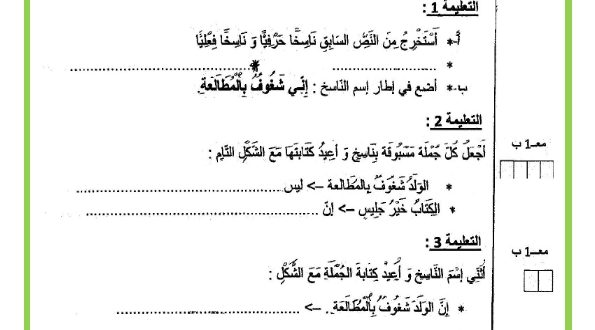 التعليمة 1 :
أ-* أَسْتَخْرِجُ مِنَ النَّصِّ السابِقِ نَاسِخًا حَرْفِيًّا وَ نَاسِخًا فِعْلِيًّا
* ........................ * ........................
ب-* أضع في إطار إسم الناسخ : إِنِّي شَغُوفٌ بِالْمُطَالَعَةِ.
التعليمة 2 :
معــ1 ب
أَجْعَلُ كُلَّ جُمْلَة مَسْبُوقَة بِنَاسِخٍ وَ أُعِيدُ كِتَابَتَهَا مَعَ الشَّكْلِ التَّامِ :
* الوَلَدُ شَغُوفٌ بِالمُطَالعة -> ليس........................
* الكِتَابُ خَيْرُ جَلِيسٍ -> إنّ ........................
التعليمة 3 :
معــ1 ب
أُثَنِّي إِسْمَ النَّاسِخِ وَ أُعِيدُ كِتَابةَ الجُمْلَةِ مَعَ الشَّكْلِ :
* إنَّ الوَلَدَ شَغُوفٌ بِالْمُطَالَعَةِ. -> ........................